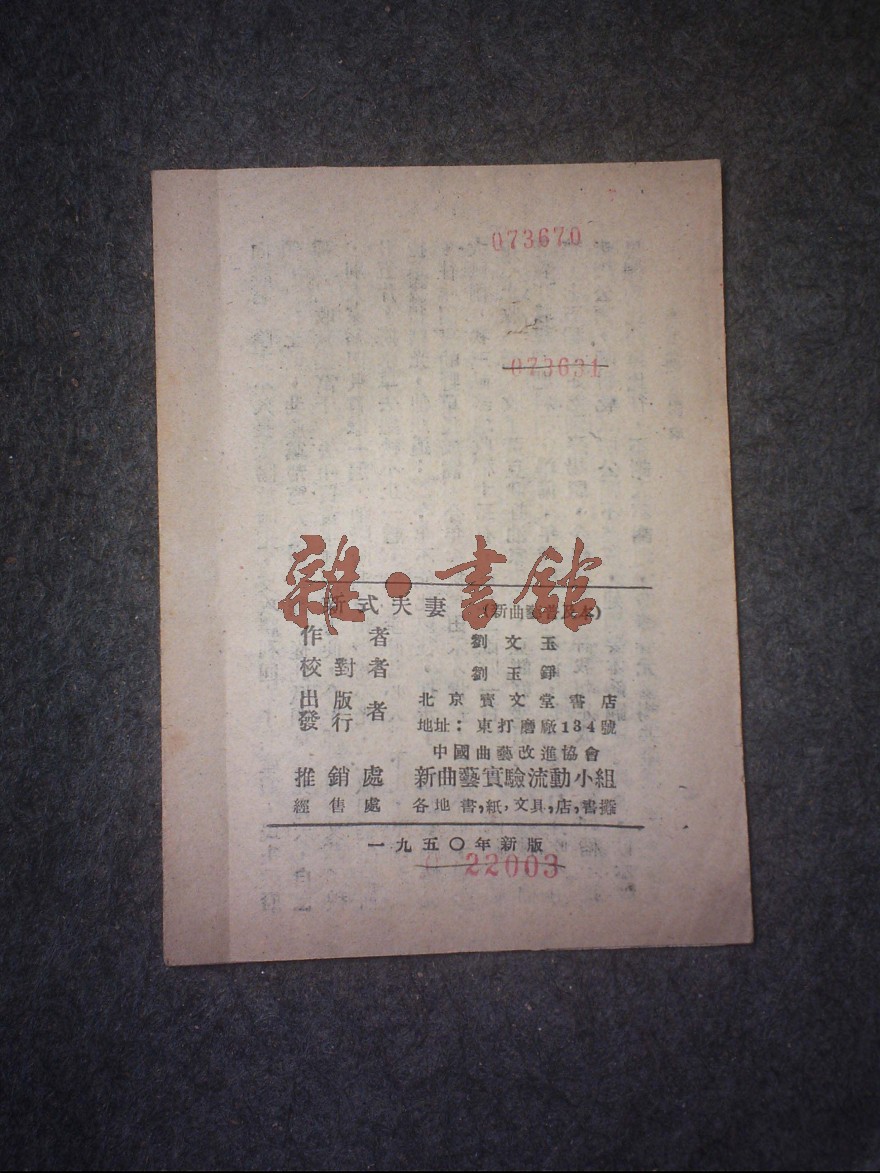 073670
073631
雜·書館
新式夫妻 (新曲藝普及本)
作者 劉文玉
校對者 劉玉錚
出版
發行者 北京寳文堂書店
地址：東打磨廠134號
中國曲藝改進協會
推銷處 新曲藝實驗流動小組
經售處 各地書,紙,文具,店,書攤
一九五〇年新版
0 22003